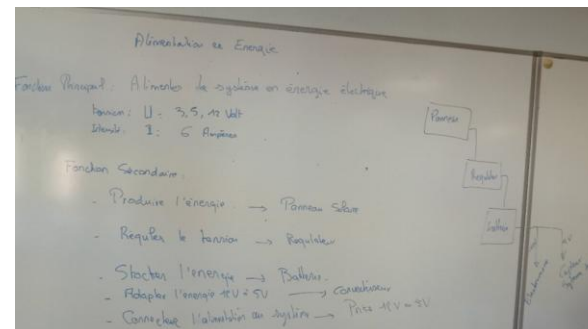 Alimentation en Energie
Fonction Principal : Alimenter le système en énergie électrique
tension : U = 3, 5, 12 Volt
Intensité : I : 6 Ampères
Fonction Secondaire :
- Produire l'énergie → Panneau Solaire
- Réguler la tension → Regulateur
- Stocker l'energie → Batterie
- Adapter l'energie 12V à 5V → Convertisseur
- Connecter l'alimentation au système → Prise 12V
Panneau
Regulateur